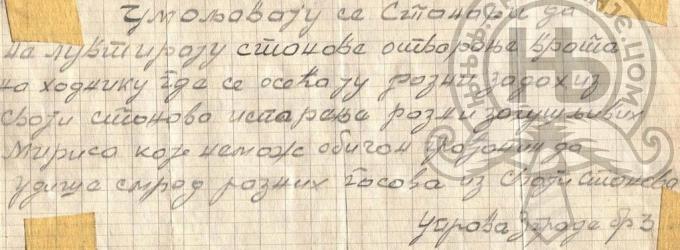 Умољавају се Станари да
на лувтирају станове отварање врата
на ходнику где се осећају разни задах из
своји станова испарења разни загушљивих
мириса које неможе обичан грађанин да
удише смрад разних гасова из своји станова
Управа Зграде бр 3